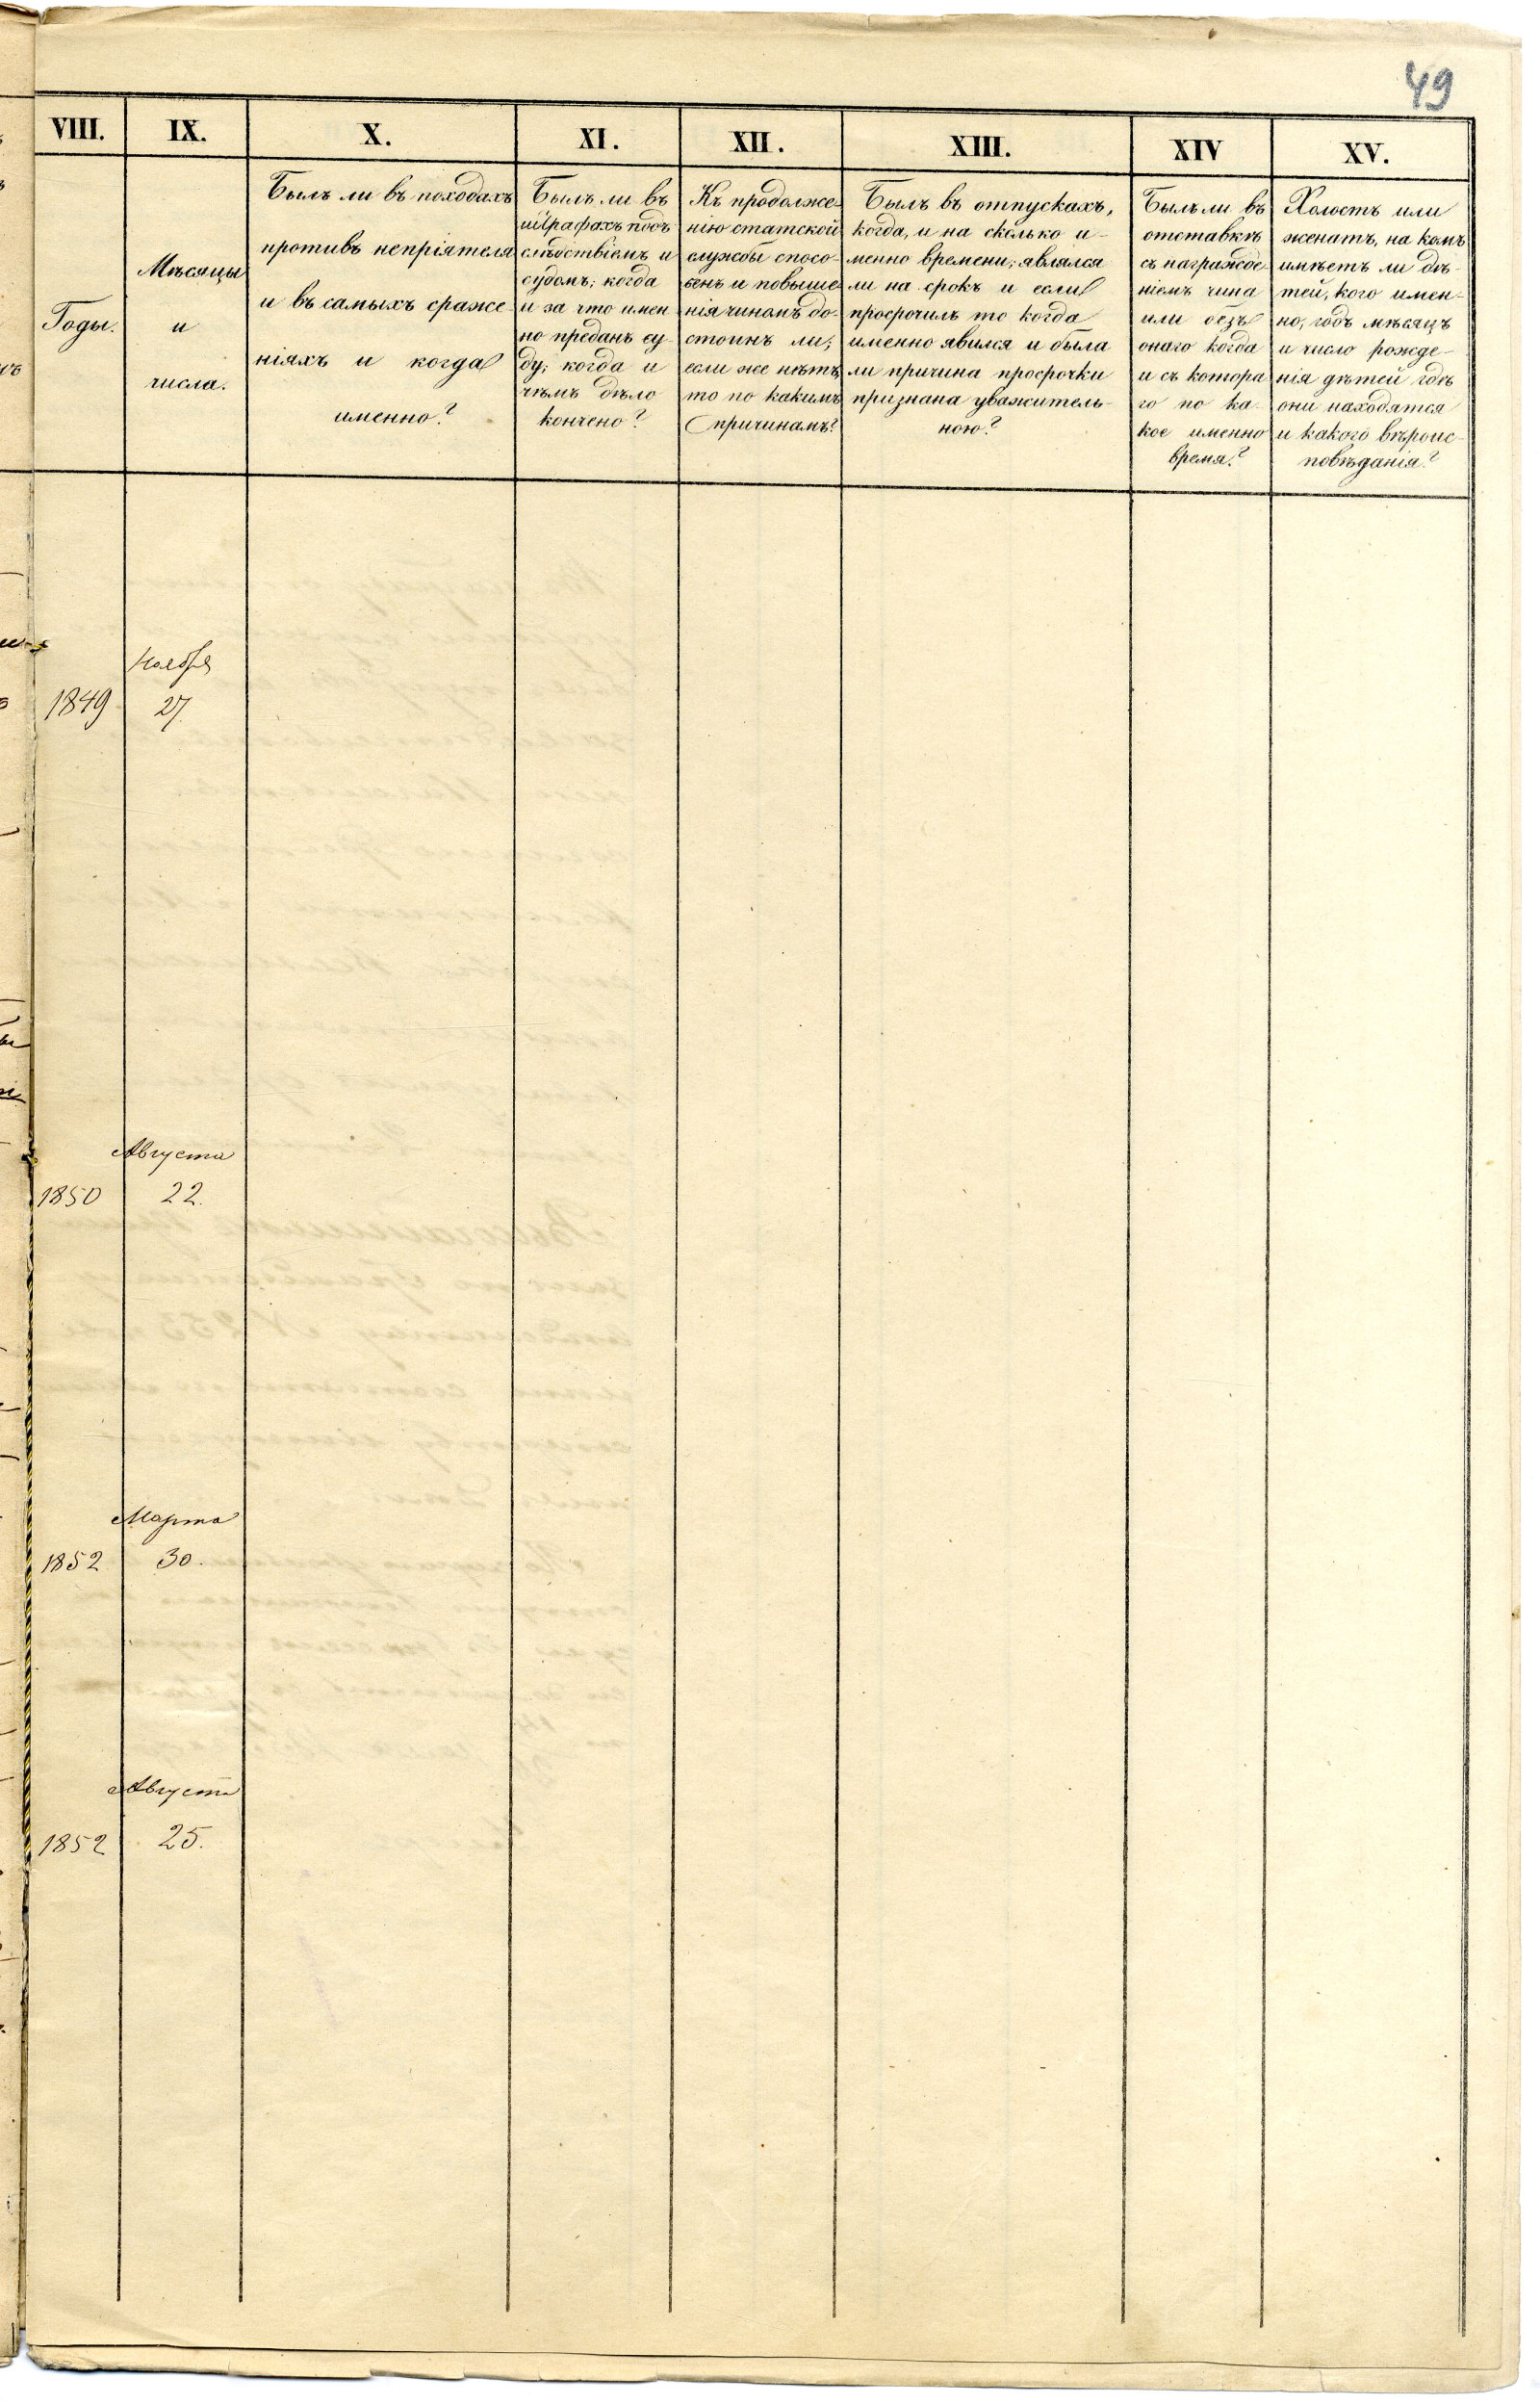 49
VIII.
IX.
X.
XI.
XII.
XIII.
XIV
XV.
Годы.
Мѣсяцы
и
числа.
Былъ ли въ походахъ
противъ непріятеля
и въ самыхъ сраже
ніяхъ и когда
именно?
Былъ ли въ
штрафахъ подъ
слѣдствіемъ и
судомъ; когда
и за что имен
но преданъ су-
ду; когда и
чѣмъ дѣло
кончено?
Къ продолже-
нію статской
службы спосо-
бенъ и повыше
нія чиномъ до-
стоинъ ли;
если же нѣтъ,
то по какимъ
причинамъ?
Былъ въ отпускахъ,
когда, и на сколько и-
менно времени; являлся
ли на срокъ и если
просрочилъ то когда
именно явился и была
ли причина просрочки
признана уважитель-
ною?
Былъ ли въ
отставкѣ
съ награжде
ніемъ чина
или безъ
онаго когда
и съ котора
го по ка-
кое именно
время?
Холостъ или
женатъ, на комъ
имѣетъ ли дѣ-
тей, кого имен-
но, годъ мѣсяцъ
и число рожде-
нія дѣтей гдѣ
они находятся
и какого вѣроис-
повѣданія?
Ноября
1849 27
Августа
1850 22.
Марта
1852 30.
Августа
1852 25.